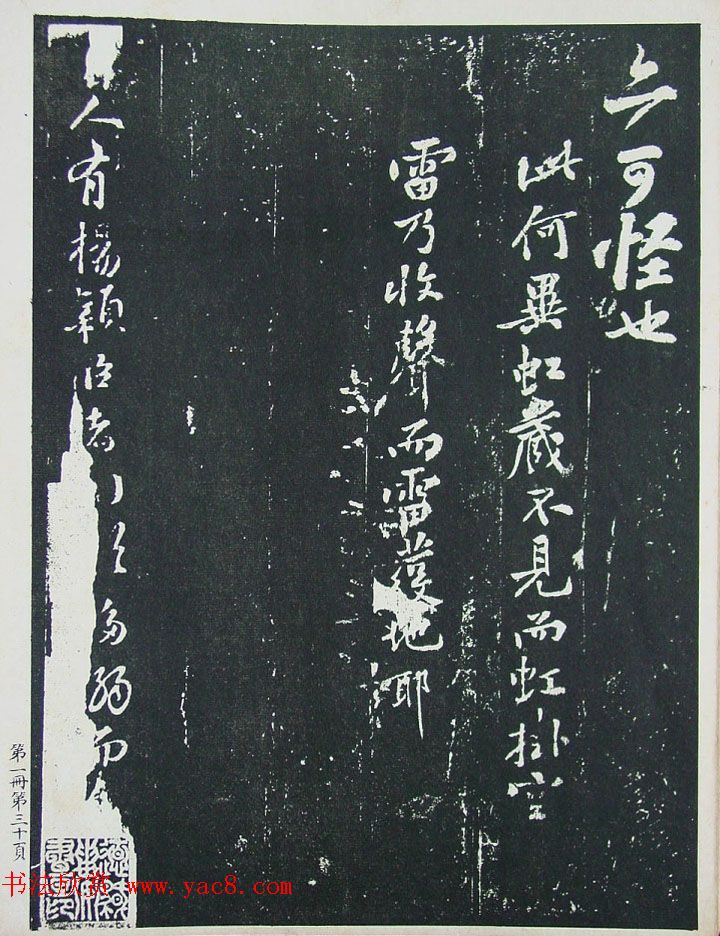 亦可怪也
此何異虹藏不見而虹掛空
雷乃收聲而雷發地耶
人有楊穎臣者
多弱而
第一冊第三十頁
书法欣赏 www.yac8.com